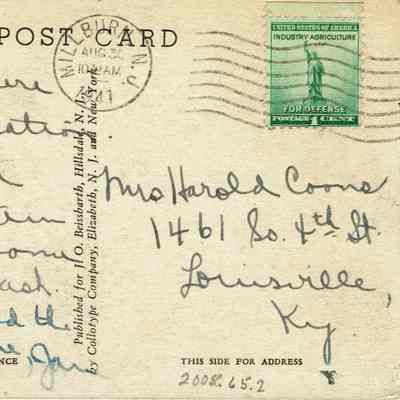 POST CARD
MILLBURN, N.J.
AUG
1941
UNITED STATES OF AMERICA
INDUSTRY-AGRICULTURE
FOR DEFENSE
POSTAGE 1 CENT
ere
ation
ome
ash.
d the
Jan
Published for J. O. Beissbarth, Hillsdale, N. J.
by Collotype Company, Elizabeth, N. J. and New York
Mrs Harold Coons
1461 So. 4th St.
Louisville,
Ky.
NCE
THIS SIDE FOR ADDRESS
2008.65.2